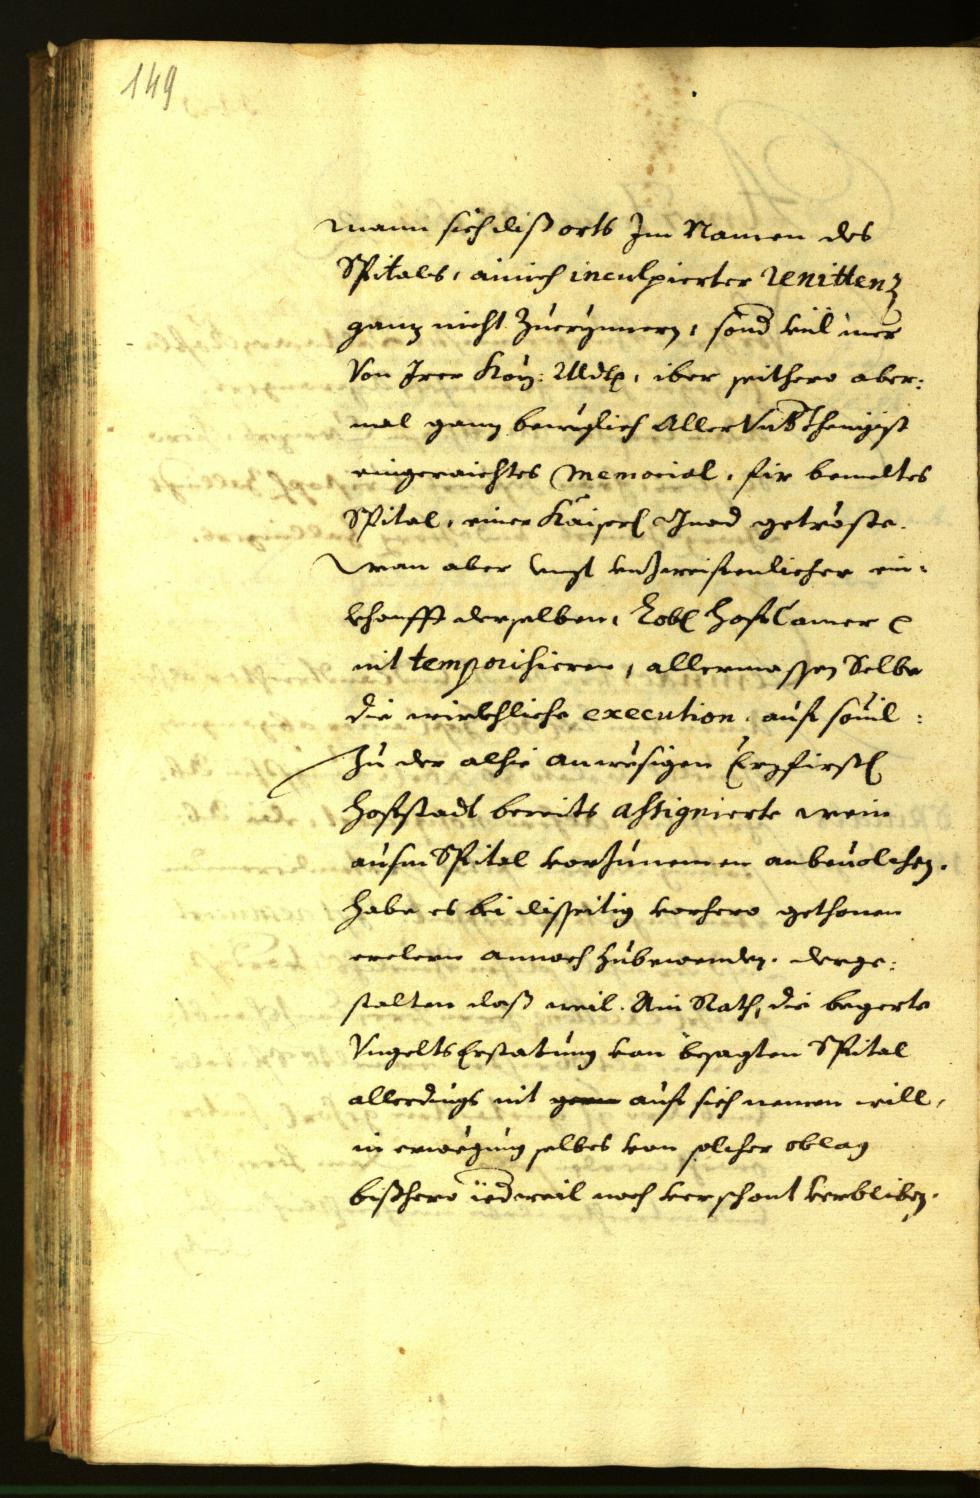 149
mann sich diß orts Im Namen des
Spitals, ainich inculpierter renittenz
ganz nicht Zuerynnern, sond vil mer
Von Irer Kay: Mdt, iber seithero aber:
mal ganz beweglich Aller Vndthenigist
eingeraichtes Memorial, fir bemeltes
Spital, einer Kaiserl Gnad getröste.
Wan aber unzweifenlicher ein:
derselben, Lobl Hof Camer
nit temporisieren, allermassen Selbe
die wirchliche execution, auf souil:
Zu der alhie anwesigen Erzfirstl
Hofstadt bereits assignierte wein
aufm Spital vorZunemen anbeuolchen.
Habe es bei disseitig vorhero gethonen
annoch Zubewenden, derge:
stalten daß weil. Ain Rath, die begerte
Vngelts Erstatung von besagten Spital
allerdings nit auf sich nemen will,
in erwegung selbes von solcher oblag
bißhero iederweil noch verschont verbliben.